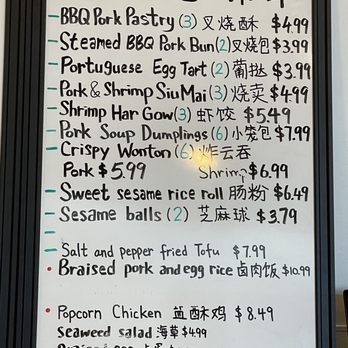 BBQ Pork Pastry (3) 叉烧酥 $4.99
Steamed BBQ Pork Bun (2) 叉烧包 $3.99
Portuguese Egg Tart (2) 葡挞 $3.99
Pork & Shrimp Siu Mai (3) 烧卖 $4.99
Shrimp Har Gow (3) 虾饺 $5.49
Pork Soup Dumplings (6) 小笼包 $7.99
Crispy Wonton (6) 炸云吞
Pork $5.99 Shrimp $6.99
Sweet sesame rice roll 肠粉 $6.49
Sesame balls (2) 芝麻球 $3.79
Salt and pepper fried Tofu $7.99
Braised pork and egg rice 卤肉饭 $10.99
Popcorn Chicken 盐酥鸡 $8.49
Seaweed salad 海草 $4.99